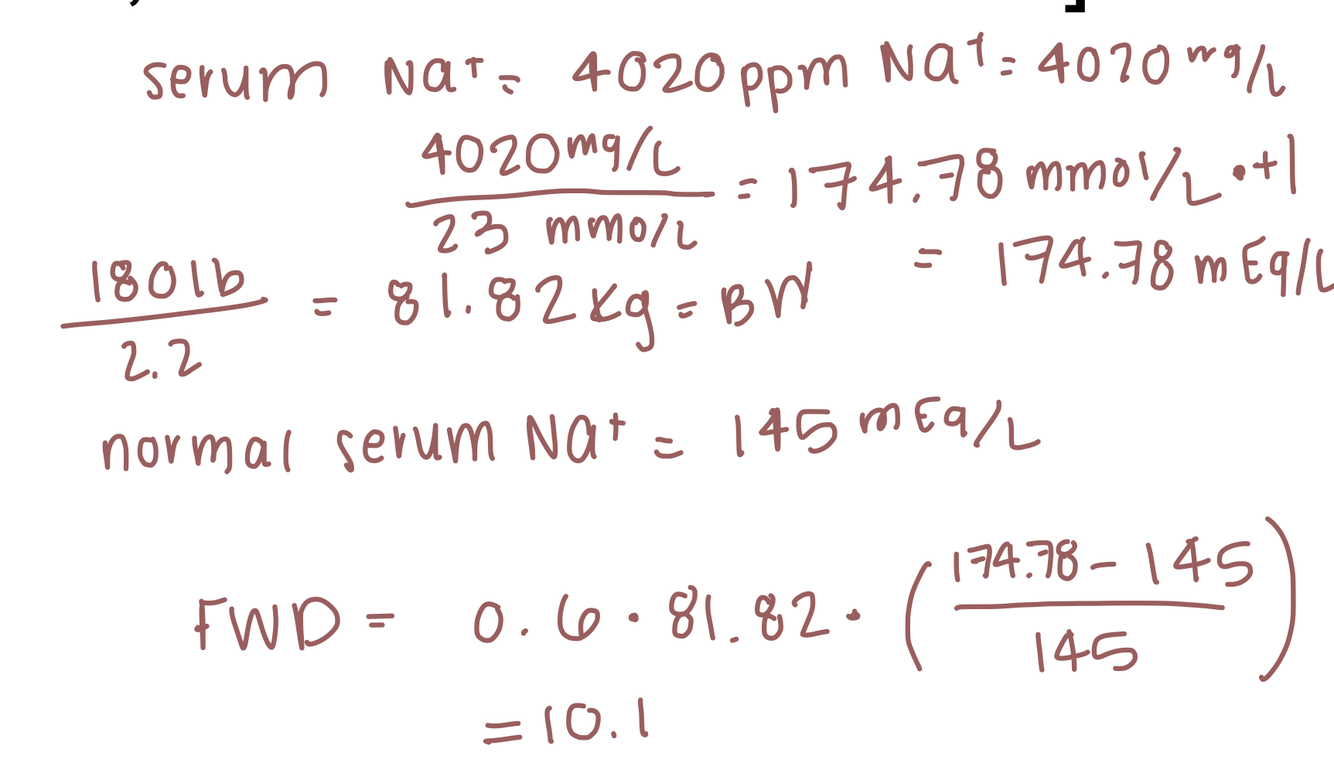 serum Na⁺ = 4020 ppm Na⁺ = 4020 mg/L
4020 mg/L
23 mmo/L
= 174.78 mmol/L • +1
= 174.78 mEq/L
180 lb
2.2
= 81.82 kg = BW
normal serum Na⁺ = 145 mEq/L
FWD = 0.6 • 81.82 • (
174.78 - 145
145
)
= 10.1